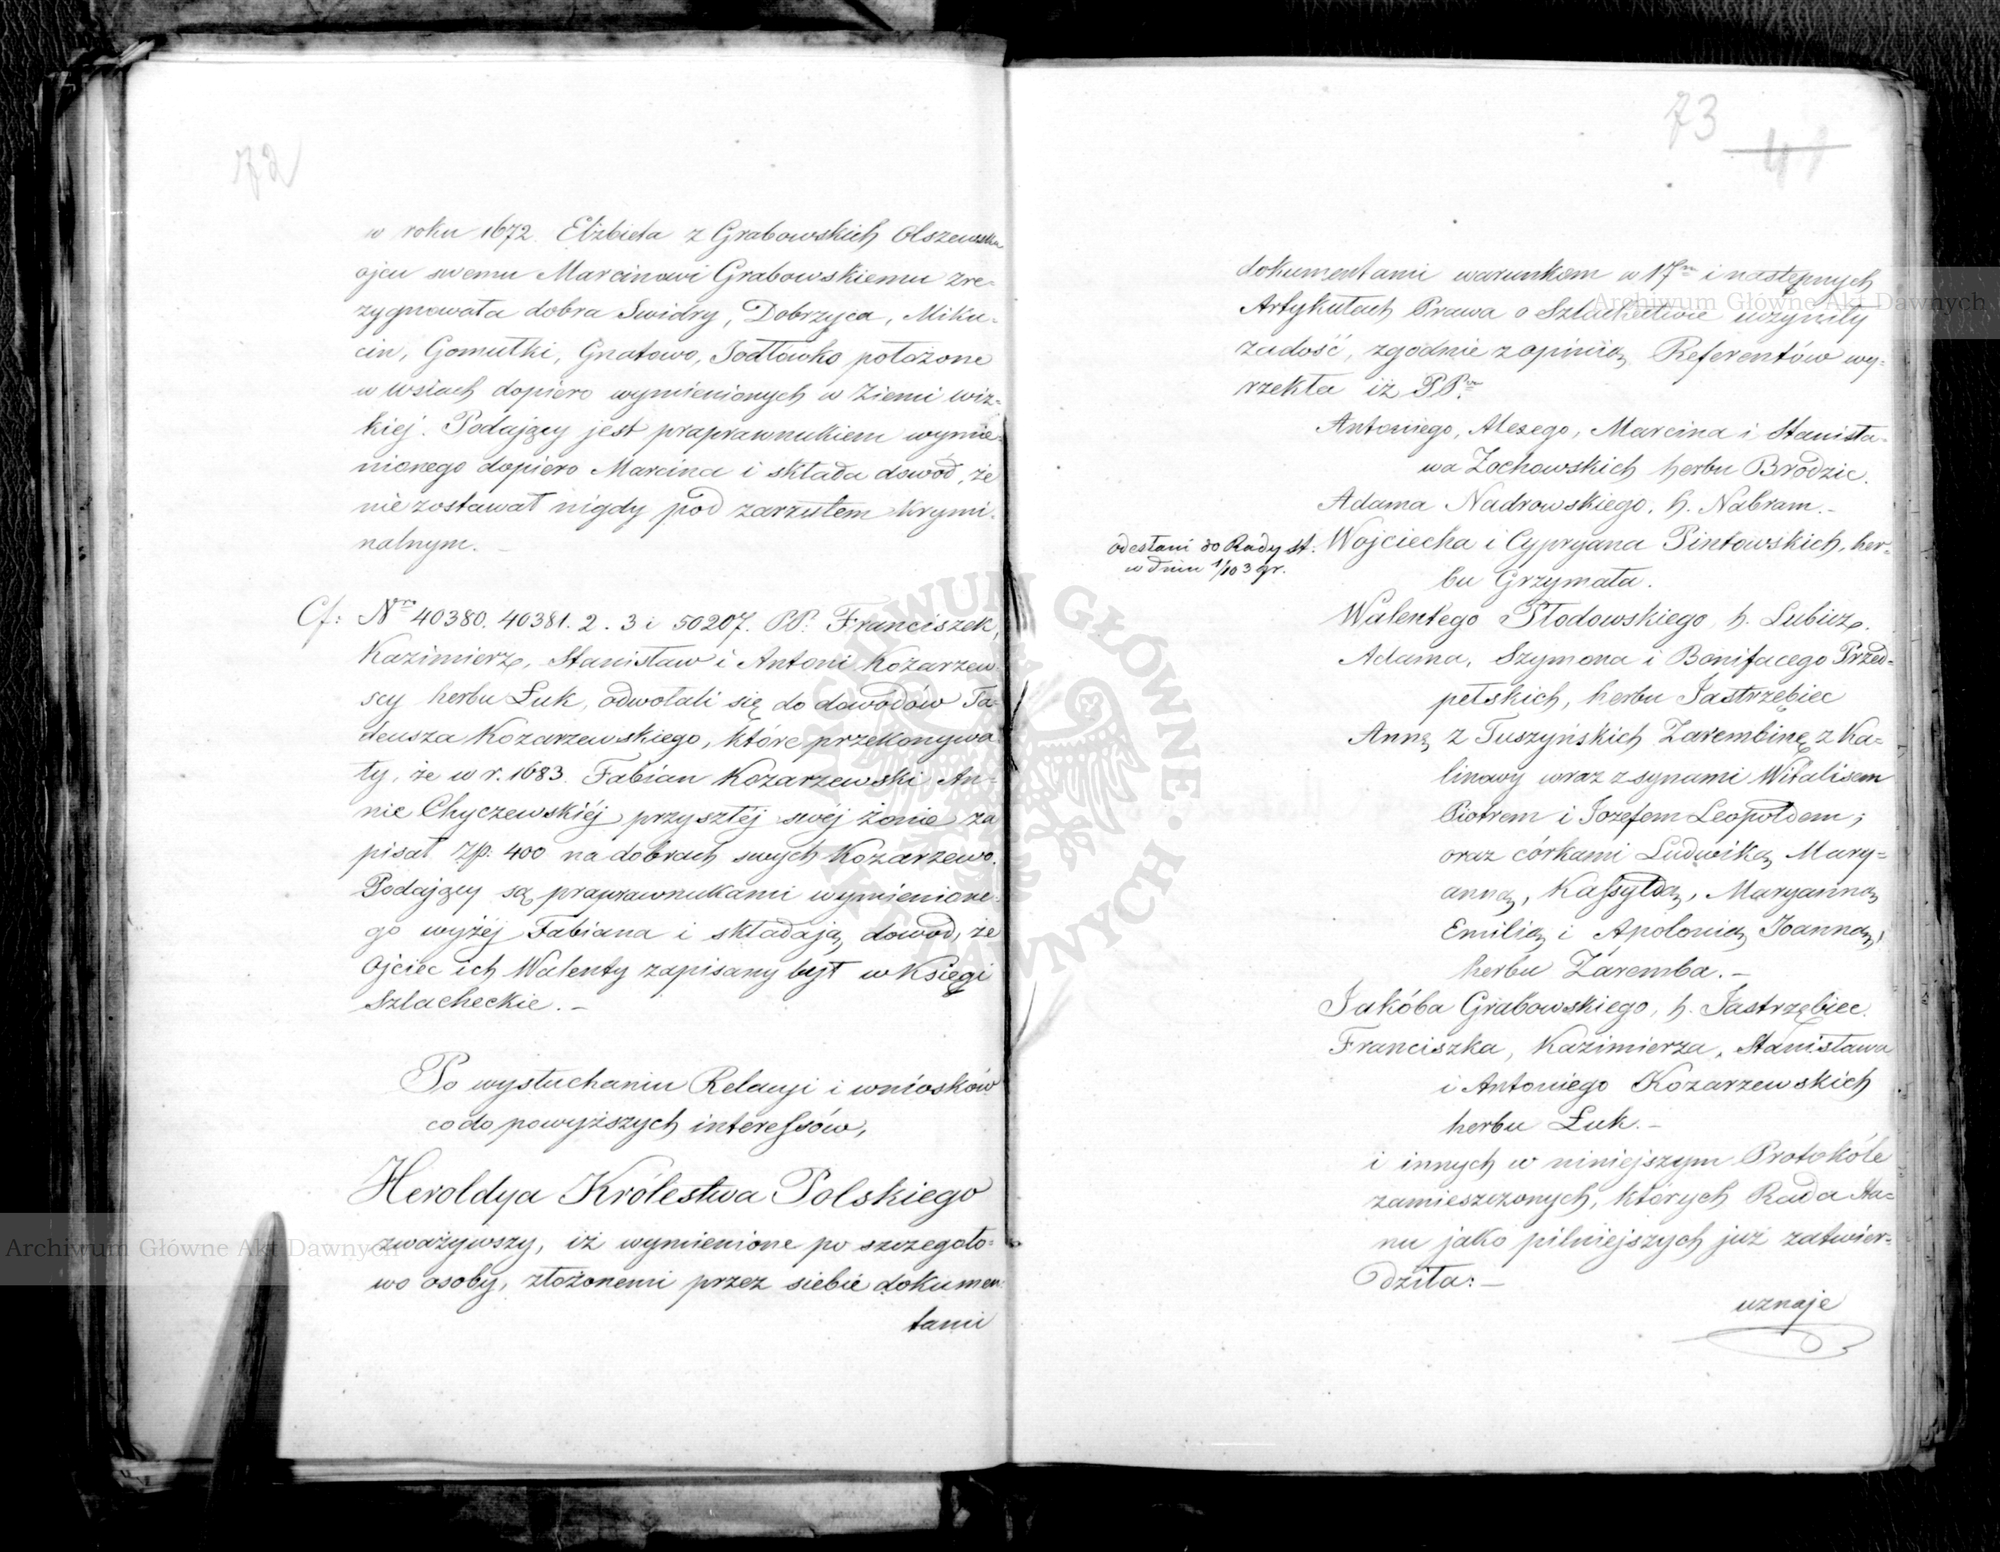 72
w roku 1672. Elżbieta z Grabowskich Olszewska
ojcu swemu Marcinowi Grabowskiemu zre-
zygnowała dobra Swidry, Dobrzyca, Miku-
cin, Gomułki, Gnatowo, Jodłówko położone
w wsiach dopiero wymienionych w Ziemi wiz-
kiej. Podający jest praprawnukiem wymie-
nionego dopiero Marcina i składa dowód, że
nie zostawał nigdy pod zarzutem krymi-
nalnym. _
Cf: Nro 40380. 40381. 2. 3 i 50207. PP. Franciszek,
Kazimierz, Stanisław i Antoni Kozarzew-
scy herbu Łuk, odwołali się do dowodów Ta-
deusza Kozarzewskiego, które przekonywa-
ły, że w r. 1683. Fabian Kozarzewski An-
nie Chyczewskiéj przyszłéj swéj żonie za
pisał Zp: 400 na dobrach swych Kozarzewo.
Podający są praprawnukami wymienione-
go wyżéj Fabiana i składają dowód, że
Ojciec ich Walenty zapisany był w Księgi
Szlacheckie. _
Po wysłuchaniu Relacyi i wniosków
co do powyższych interessów,
Heroldya Królestwa Polskiego
zważywszy, iż wymienione po szczegóło-
wo osoby, złożonemi przez siebie dokumen-
tami
73
41
dokumentami warunkom w 17m i następnych
Artykułach Prawa o Szlachectwie uczyniły
zadość, zgodnie z opinią Referentów wy-
rzekła iż PP.
Antoniego, Alexego, Marcina i Stanisła-
wa Żochowskich herbu Brodzic.
Adama Nadrowskiego, h. Nabram. _
odesłani do Rady st.
w dniu 1/10 3 gr.
Wojciecha i Cypryana Pintowskich, her-
bu Grzymała.
Walentego Płodowskiego h. Lubicz.
Adama, Szymona i Bonifacego Przed-
pełskich, herbu Jastrzębiec
Annę z Tuszyńskich Zarembinę z Ka-
linowy wraz z synami Witalisem
Piotrem i Jozefem Leopoldem;
oraz córkami Ludwiką Mary-
anną, Kassyldą, Maryanną
Emilią i Apolonią Joanną,
herbu Zaremba. _
Jakóba Grabowskiego, h. Jastrzębiec.
Franciszka, Kazimierza, Stanisława
i Antoniego Kozarzewskich
herbu Łuk. _
i innych w niniejszym Protokóle
zamieszczonych, których Rada Sta-
nu jako pilniejszych już zatwier-
dziła: _
uznaje
Archiwum Główne Akt Dawnych
Archiwum Główne Akt Dawnych
ARCHIWUM GŁÓWNE AKT DAWNYCH